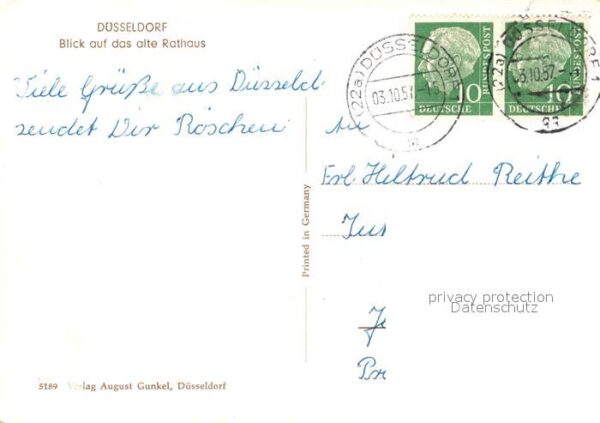 DÜSSELDORF
Blick auf das alte Rathaus
Viele Grüße aus Düsseld.
sendet Dir Röschen
(22a) DÜSSELDORF
03.10.57
(22a) DÜSSELDORF 1
03.10.57
10
DEUTSCHE
BUNDESPOST
10
DEUTSCHE
BUNDESPOST
An
Frl. Hiltrud
Printed in Germany
privacy protection
Datenschutz
5189 Verlag August Gunkel, Düsseldorf